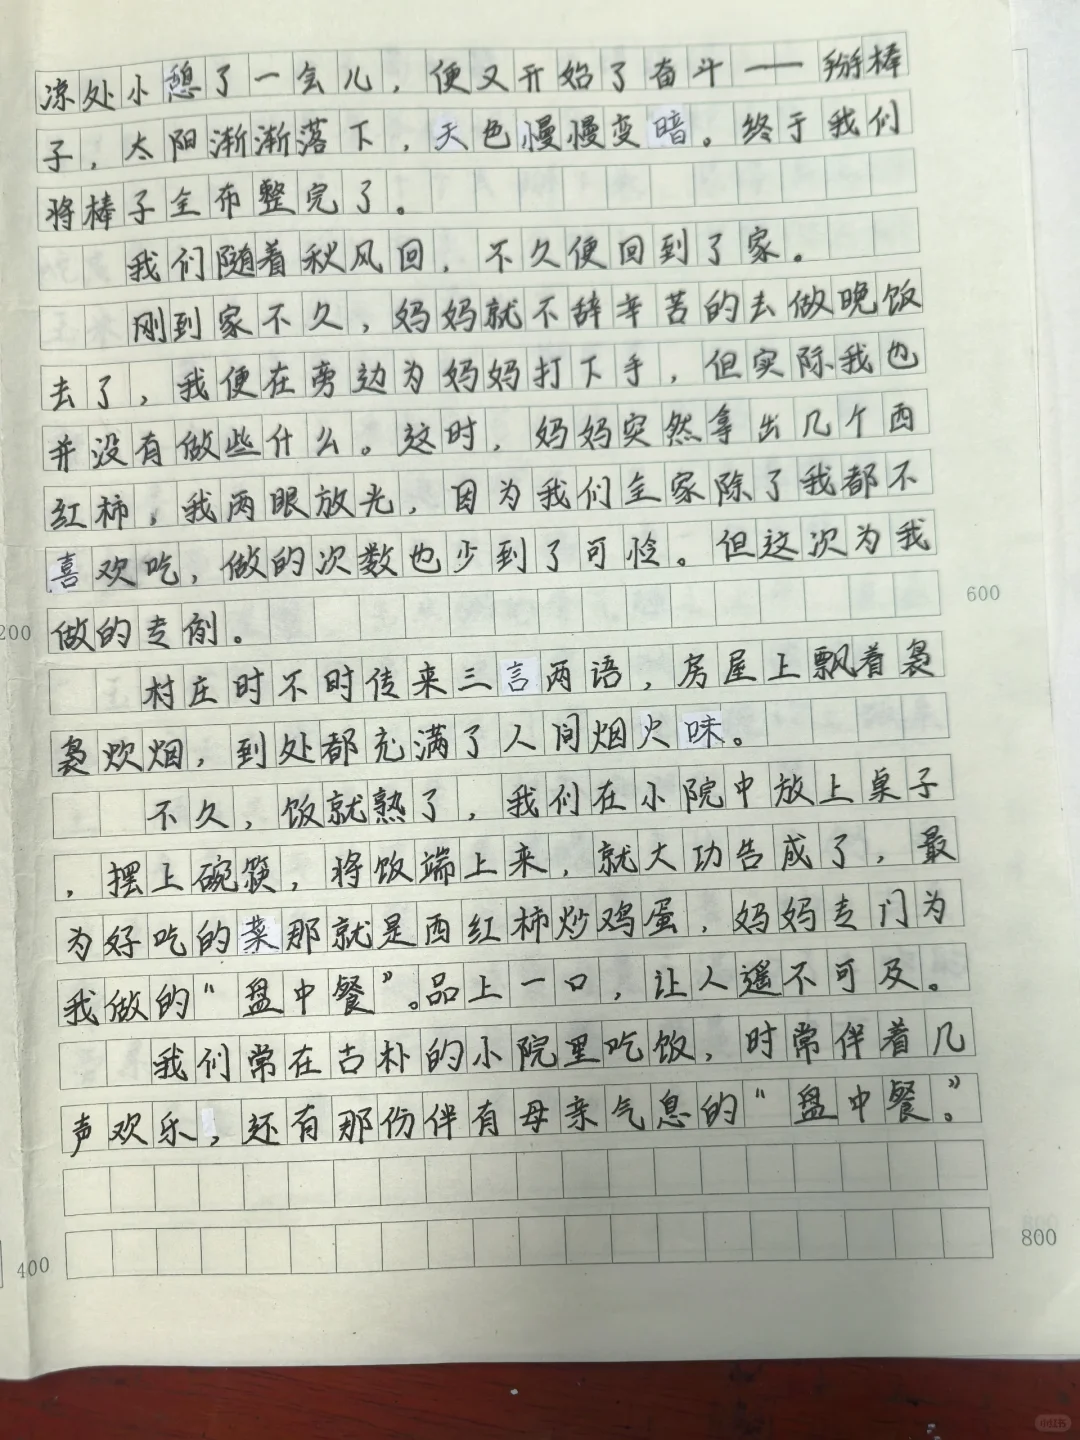 凉处小憩了一会儿，便又开始了奋斗——掰棒
子，太阳渐渐落下，天色慢慢变暗。终于我们
将棒子全布整完了。
我们随着秋风回，不久便回到了家。
刚到家不久，妈妈就不辞辛苦的去做晚饭
去了，我便在旁边为妈妈打下手，但实际我也
并没有做些什么。这时，妈妈突然拿出几个西
红柿，我两眼放光，因为我们全家除了我都不
喜欢吃，做的次数也少到了可怜。但这次为我
600
做的专例。
200
村庄时不时传来三言两语，房屋上飘着袅
袅炊烟，到处都充满了人间烟火味。
不久，饭就熟了，我们在小院中放上桌子
，摆上碗筷，将饭端上来，就大功告成了，最
为好吃的菜那就是西红柿炒鸡蛋，妈妈专门为
我做的“盘中餐”。品上一口，让人遥不可及。
我们常在古朴的小院里吃饭，时常伴着几
声欢乐，还有那份伴有母亲气息的“盘中餐。”
800
400
小红书